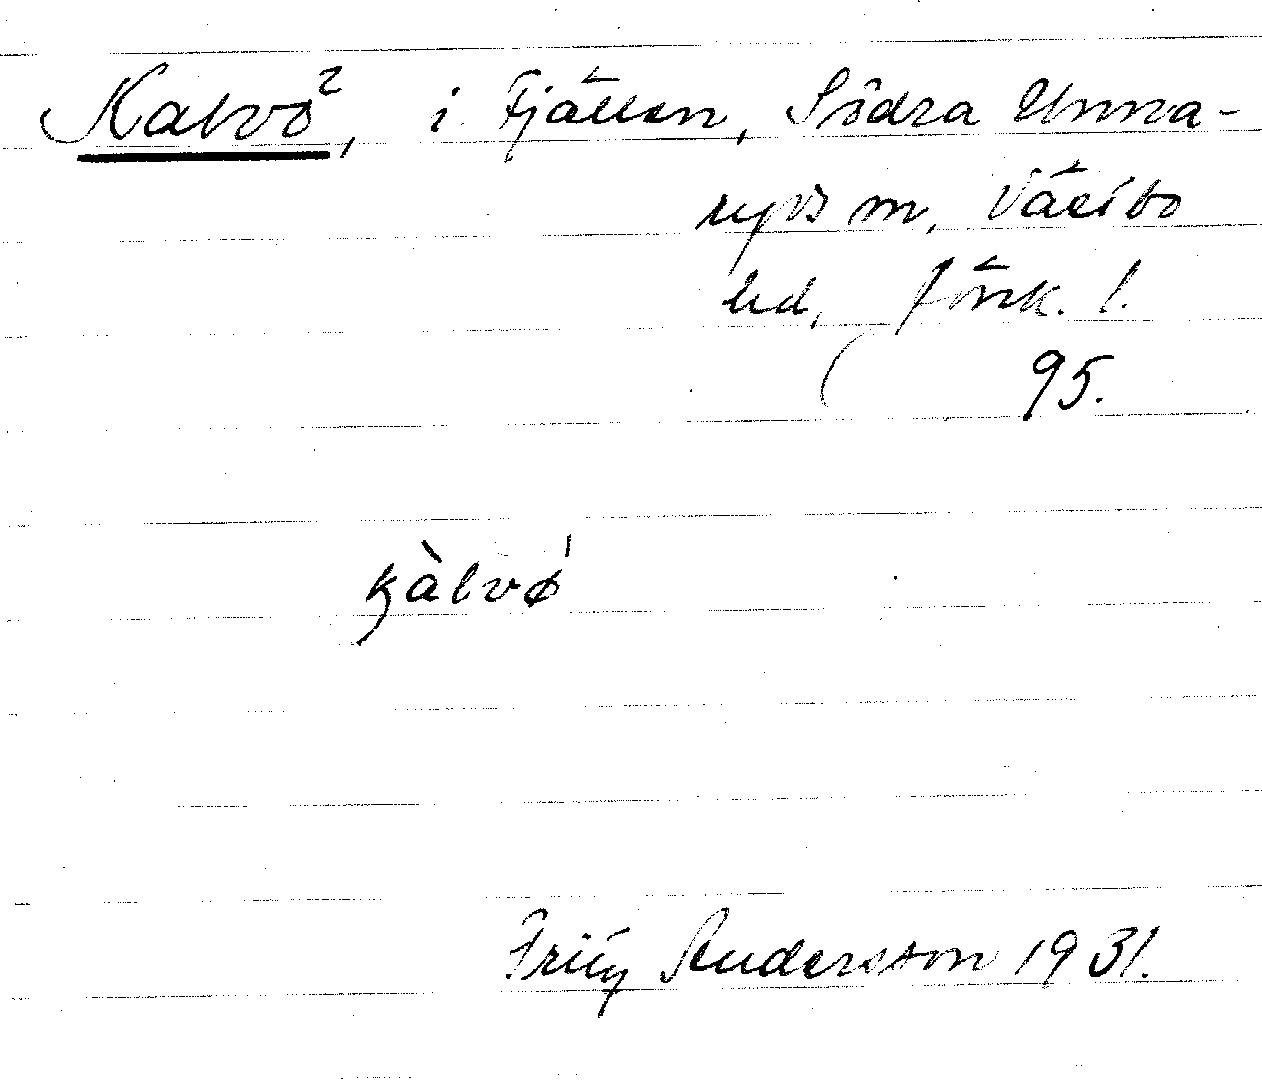 Kalvö², i Fjällen, Södra Unna-
ryds sn, Västbo
hd, Jönk. l.
95.
kàlvø̍
Fritz Andersson 1931.